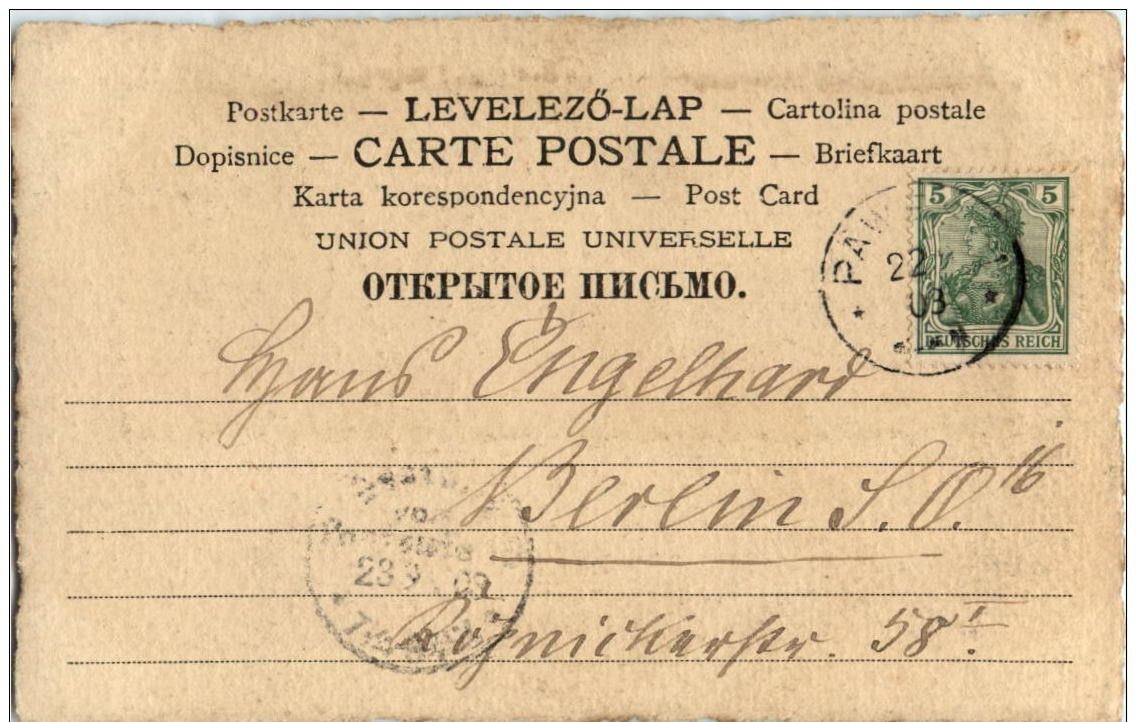 Postkarte — LEVELEZŐ-LAP — Cartolina postale
Dopisnice — CARTE POSTALE — Briefkaart
Karta korespondencyjna — Post Card
UNION POSTALE UNIVERSELLE
ОТКРЫТОЕ ПИСЬМО.
5 5
DEUTSCHES REICH
22
03
Hans Engelhard
Berlin S.O. 16
23 9 03
58 I